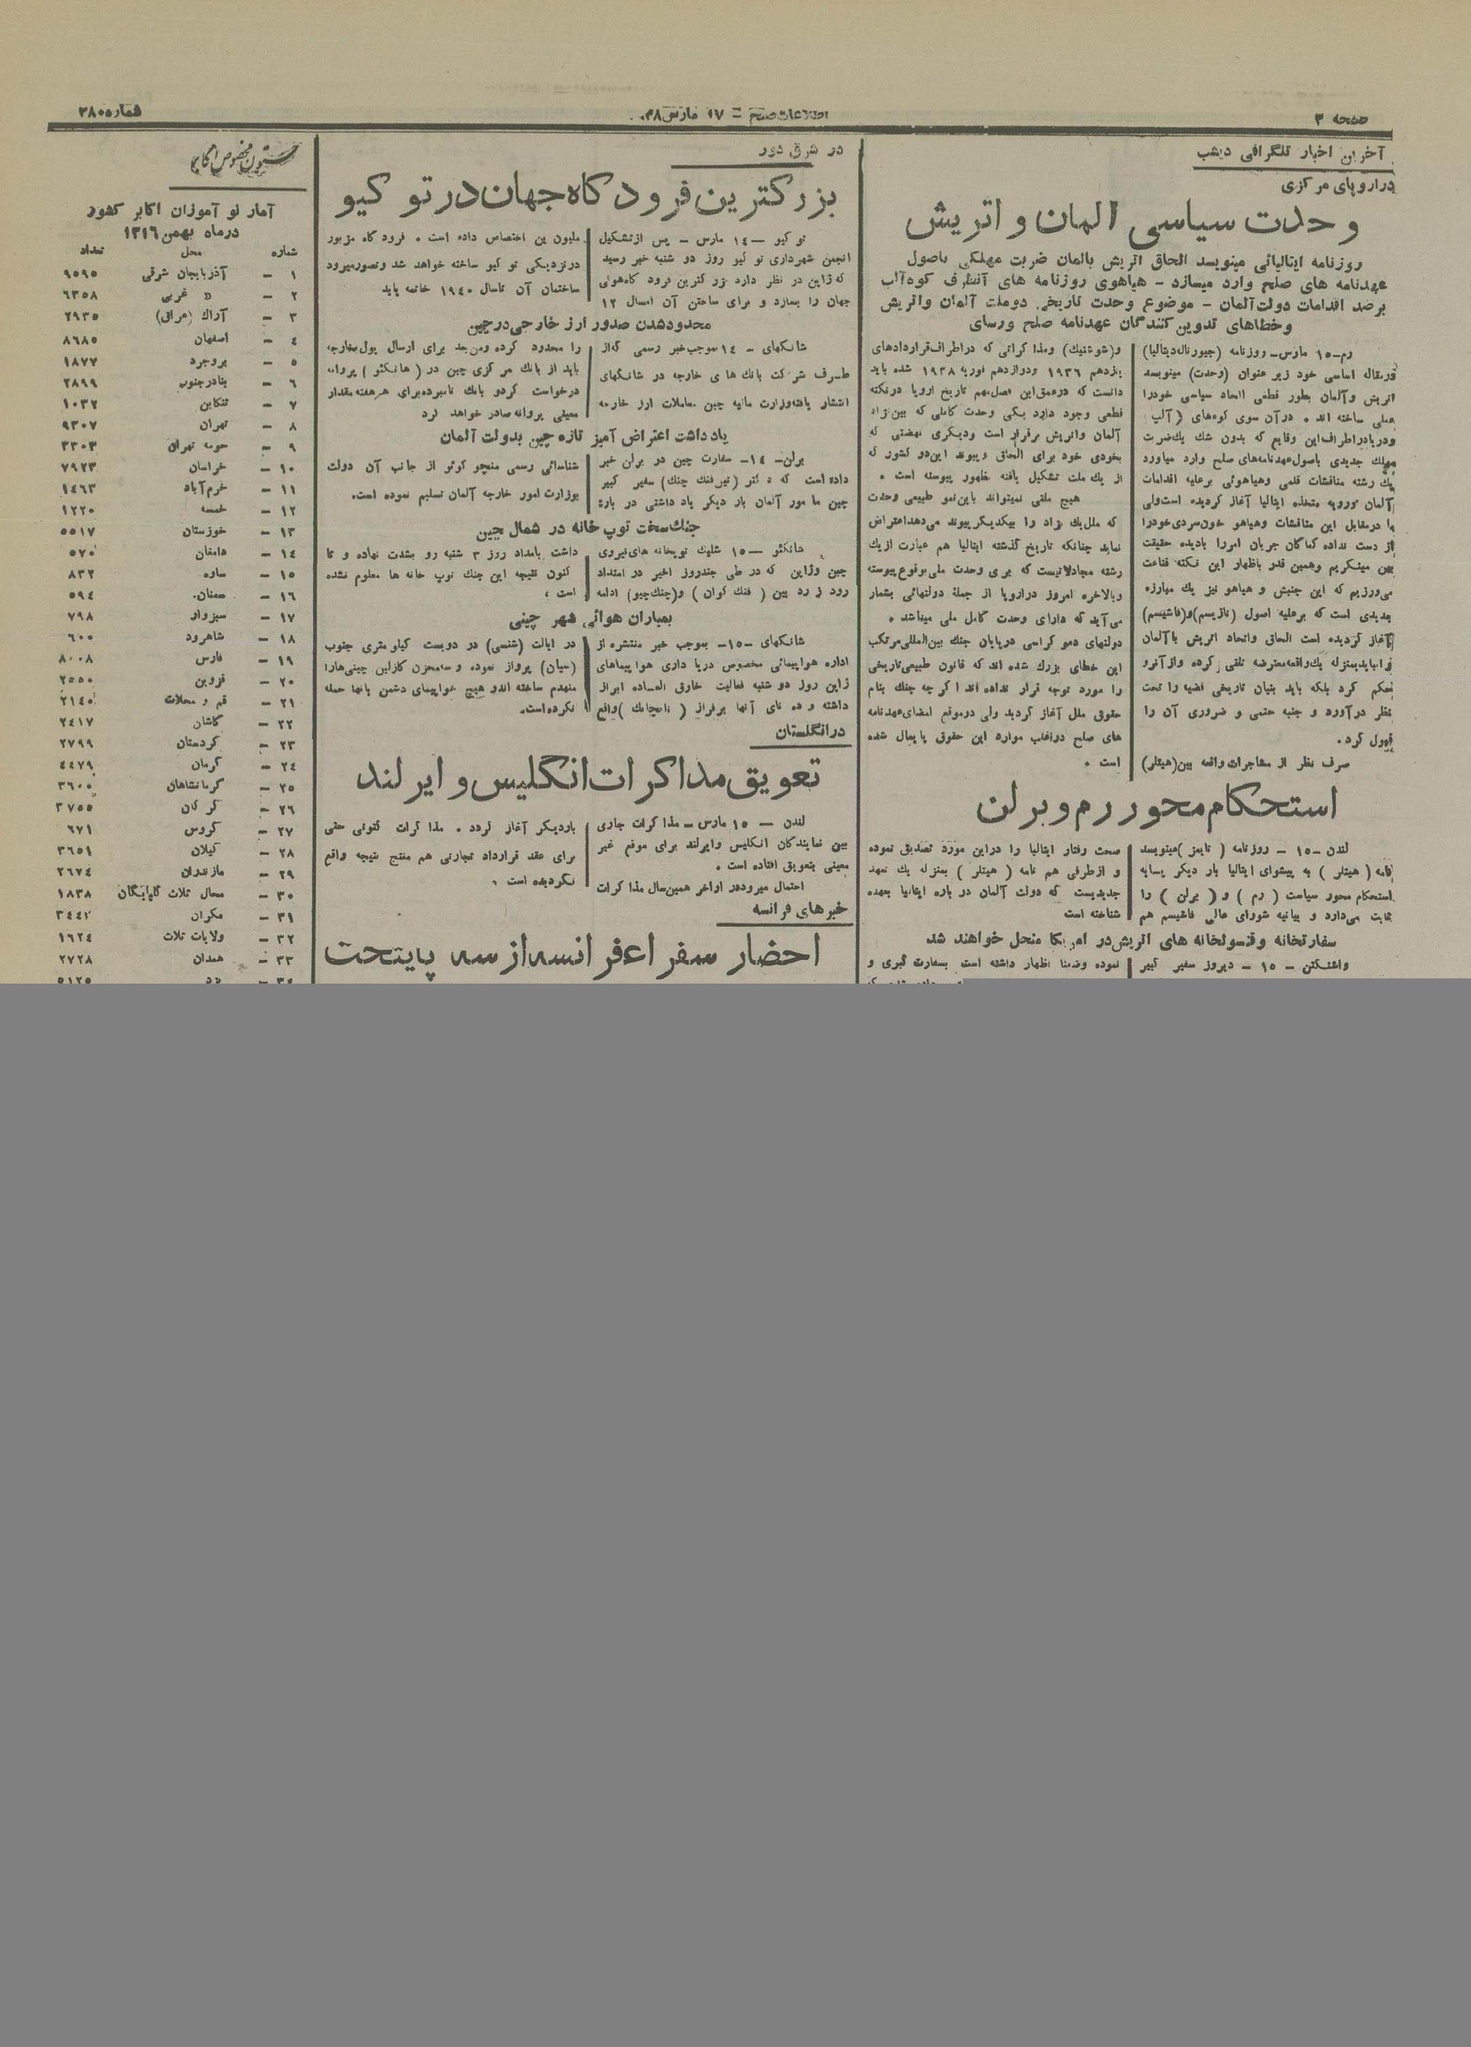 صفحه ۳
اطلاعات صبح – ۱۷ مارس ۳۸
شماره ۳۸۰۵
آخرین اخبار تلگرافی دیشب
در اروپای مرکزی
وحدت سیاسی آلمان و اتریش
روزنامه ایتالیائی مینویسد الحاق اتریش بالمان ضربت مهلکی باصول
عهدنامه های صلح وارد میسازد – هیاهوی روزنامه های آنطرف کوه آلب
برضد اقدامات دولت آلمان – موضوع وحدت تاریخی دوملت آلمان واتریش
وخطاهای تدوین کنندگان عهدنامه صلح ورسای
رم–۱۵ مارس– روزنامه (جیورنال دیتالیا)
درمقاله اساسی خود زیر عنوان (وحدت) مینویسد
اتریش وآلمان بطور قطعی اتحاد سیاسی خودرا
عملی ساخته اند ۰ درآن سوی کوه‌های (آلپ
ودریادراطراف این وقایع که بدون شك یك ضربت
مهلك جدیدی باصول عهدنامه‌های صلح وارد میاورد
یك رشته مناقشات قلمی وهیاهوئی برعلیه اقدامات
آلمان ورویه متخذه ایتالیا آغاز گردیده است ولی
ما درمقابل این مناقشات وهیاهو خون‌سردی خودرا
از دست نداده کماکان جریان امررا بادیده حقیقت
بین مینگریم وهمین قدر باظهار این نکته قناعت
می‌ورزیم که این جنبش و هیاهو نیز یك مبارزه
جدیدی است که برعلیه اصول (نازیسم)و(فاشیسم)
آغاز گردیده است الحاق واتحاد اتریش باآلمان
را نبایدبمنزله یك واقعه معترضه تلقی کرده وازآنرو
حکم کرد بلکه باید بنیان تاریخی قضیه را تحت
نظر درآورد و جنبه حتمی و ضروری آن را
قبول کرد.
صرف نظر از مشاجرات واقعه بین(هیتلر)
و(شوشنیك) ومذاکراتی که دراطراف قراردادهای
یازدهم ۱۹۳۶ ودوازدهم فوریه ۱۹۳۸ شده باید
دانست که درعمق این فصل مهم تاریخ اروپا دونکته
قطعی وجود دارد یکی وحدت کاملی که بین نژاد
آلمان واتریش برقرار است ودیگری نهضتی که
بخودی خود برای الحاق وپیوند این دو کشور که
از یك ملت تشکیل یافته ظهور پیوسته است ۰
هیچ ملتی نمیتواند باین نمو طبیعی وحدت
که ملل یك نژاد را بیکدیگر پیوند می‌دهد اعتراض
نماید چنانکه تاریخ گذشته ایتالیا هم عبارت از یك
رشته مجادلاتیست که برای وحدت ملی بوقوع پیوسته
وبالاخره امروز دراروپا از جملهٔ دولتهائی بشمار
می‌آید که دارای وحدت کامل ملی میباشد ۰
دولتهای دمو کراسی درپایان جنك بین‌المللی مرتکب
این خطای بزرك شده اند که قانون طبیعی تاریخی
را مورد توجه قرار نداده اند اگر چه جنك بنام
حقوق ملل آغاز گردید ولی درموقع امضای عهدنامه
های صلح دراغلب موارد این حقوق پایمال شده
است ۰
استحکام محور رم و برلن
لندن –۱۵ – روزنامه (تایمز)مینویسد
نامه (هیتلر) به پیشوای ایتالیا بار دیگر بسابه
استحکام محور سیاست (رم) و (برلن) را
ثابت می‌دارد و بیانیه شورای عالی فاشیسم هم
صحت رفتار ایتالیا را دراین مورد تصدیق نموده
و ازطرفی هم نامه (هیتلر) بمنزله یك تعهد
جدیدیست که دولت آلمان در باره ایتالیا بعهده
شناخته است
سفارتخانه وقنسولخانه های اتریش در امریکا منحل خواهند شد
واشنگتن – ۱۵ – دیروز سفیر کبیر
نموده وضمنا اظهار داشته است بسفارت کبری و
در شرق دور
بزرگترین فرودگاه جهان در توکیو
توکیو – ۱۴ مارس – پس ازتشکیل
انجمن شهرداری توکیو روز دو شنبه خبر رسید
که ژاپن در نظر دارد بزرگترین فرودگاه‌هوئی
جهان را بسازد و برای ساختن آن امسال ۱۲
ملیون ین اختصاص داده است ۰ فرودگاه مزبور
درنزدیکی توکیو ساخته خواهد شد وتصورمیرود
ساختمان آن تاسال ۱۹۴۰ خاتمه یابد
محدودشدن صدور ارز خارجی درچین
شانگهای – ۱۴ بموجب خبر رسمی که از
طرف شرکت بانك های خارجه در شانگهای
انتشار یافته وزارت مالیه چین معاملات ارز خارجه
را محدود کرده ومن بعد برای ارسال پول بخارجه
باید از بانك مرکزی چین در (هانکئو) پروانه
درخواست کردو بانك نامبرده برای هرهفته مقدار
معینی پروانه صادر خواهد کرد
یادداشت اعتراض آمیز تازه چین بدولت آلمان
برلن– ۱۴– سفارت چین در برلن خبر
داده است که دکتر (تین‌فنك چنك) سفیر کبیر
چین مامور آلمان بار دیگر یاد داشتی در بارهٔ
شناسائی رسمی منچوکوئو از جانب آن دولت
بوزارت امور خارجه آلمان تسلیم نموده است.
جنك سخت توپ خانه در شمال چین
هانکئو – ۱۵ شلیك توپخانه های نیروی
چین وژاپن که در طی چندروز اخیر در امتداد
رود زرد بین (فنك کوان) و(چنك‌چیو) ادامه
داشت بامداد روز ۳ شنبه رو بشدت نهاده و تا
کنون نتیجه این جنك توپ خانه ها معلوم نشده
است ،
بمباران هوائی شهر چینی
شانگهای –۱۵– بموجب خبر منتشره از
اداره هواپیمائی مخصوص دریا داری هواپیماهای
ژاپن روز دو شنبه فعالیت خارق العاده ابراز
داشته و ده تای آنها برفراز (نانچانك)واقع
در ایالت (شنسی) در دویست کیلومتری جنوب
(سیان) پرواز نموده و سه‌مخزن گازلین چینی‌هارا
منهدم ساخته اندو هیچ هواپیمای دشمن بانها حمله
نکرده است.
درانگلستان
تعویق مذاکرات انگلیس و ایرلند
لندن – ۱۵ مارس– مذاکرات جاری
بین نمایندگان انگلیس وایرلند برای موقع غیر
معینی بتعویق افتاده است ۰
احتمال میروددر اواخر همین سال مذاکرات
باردیگر آغاز گردد ۰ مذاکرات کنونی حتی
برای عقد قرارداد تجارتی هم منتج نتیجه واقع
نگردیده است ،
خبرهای فرانسه
احضار سفراء فرانسه از سه پایتخت
ستون مخصوص اکابر
آمار نو آموزان اکابر کشور
درماه بهمن ۱۳۱۶
شماره محل تعداد
۱ – آذربایجان شرقی ۹۵۹۵
۲ – » غربی ۶۳۵۸
۳ – آراك (عراق) ۲۹۳۵
۴ – اصفهان ۸۶۸۵
۵ – بروجرد ۱۸۷۷
۶ – بنادرجنوب ۲۸۹۹
۷ – تنکابن ۱۰۳۲
۸ – تهران ۹۳۰۷
۹ – حومه تهران ۳۳۰۳
۱۰ – خراسان ۷۹۲۳
۱۱ – خرم‌آباد ۱۴۶۳
۱۲ – خمسه ۱۲۲۰
۱۳ – خوزستان ۵۵۱۷
۱۴ – دامغان ۵۷۰
۱۵ – ساوه ۸۳۲
۱۶ – سمنان ۵۹۴
۱۷ – سبزوار ۷۹۸
۱۸ – شاهرود ۶۰۰
۱۹ – فارس ۸۰۰۸
۲۰ – قزوین ۲۵۵۰
۲۱ – قم و محلات ۲۱۴۵
۲۲ – کاشان ۲۴۱۷
۲۳ – کردستان ۲۷۹۹
۲۴ – کرمان ۴۴۷۹
۲۵ – کرمانشاهان ۳۶۰۰
۲۶ – گرگان ۳۷۵۵
۲۷ – گروس ۶۷۱
۲۸ – گیلان ۳۶۵۱
۲۹ – مازندران ۲۶۷۴
۳۰ – محال ثلاث گلپایگان ۱۸۳۸
۳۱ – مکران ۳۴۴۲
۳۲ – ولایات ثلاث ۱۶۲۴
۳۳ – همدان ۲۷۲۸
۳۴ – یزد ۵۱۲۵